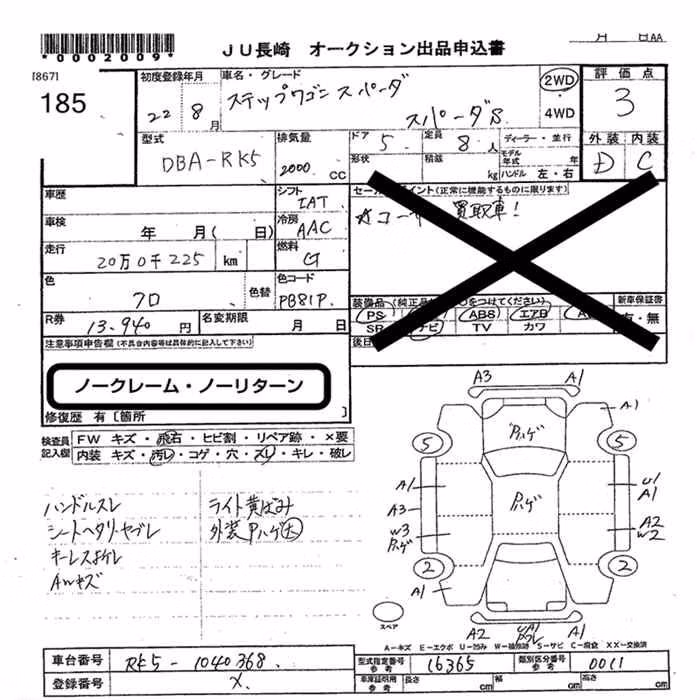 *0002009*
JU長崎 オークション出品申込書
AA
[867]
185
初度登録年月
22 8月
車名・グレード
ステップワゴン スパーダ
スパーダS
2WD
4WD
評価点
3
外装 内装
D C
型式
DBA-RK5
排気量
2000 CC
ドア 5
定員 8人
ディーラー・並行
形状
積載 kg
モデル年式 年
ハンドル 左・右
車歴
シフト
IAT
セールスポイント(正常に機能するものに限ります)
買取車!
車検
年 月( 日)
冷房
AAC
走行
20万0千225 km
燃料
G
色
70
色替
色コード
PB81P
装備品
新車保証書
有・無
PS
ABS
エアB
SR
ナビ
TV
カワ
R券
13,940円
名変期限
月 日
後日
注意事項申告欄(不具合内容等は具体的に記入して下さい)
ノークレーム・ノーリターン
修復歴 有〔箇所 〕
検査員記入欄
FW キズ・飛石・ヒビ割・リペア跡・×要
内装 キズ・汚レ・コゲ・穴・スレ・キレ・破レ
ハンドルスレ
シートヘタリ・ヤブレ
キーレスナケレ
AWキズ
ライト黄ばみ
外装Pハゲ大
A3 A1
A1
5 Pハゲ 5
A1
A3
W3
Pハゲ
Pハゲ
U1
A1
A2
W2
2 2
A1
スペア
A2 A1
A-キズ E-エクボ U-凹み W-補修跡 S-サビ C-腐食 XX-交換済
車台番号 RK5-1040368
登録番号 X.
型式指定番号 参考 16365
類別区分番号 参考 0011
車庫証明用 参考 長さ cm 幅 cm 高さ cm